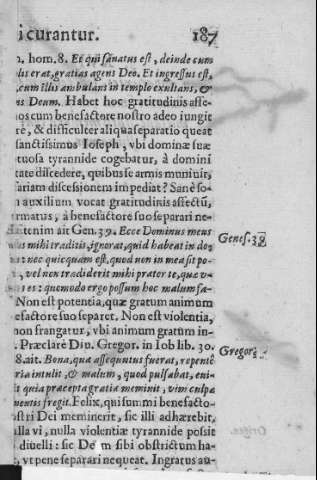 i curantur. 187
1. hom. 8. Et qui sanatus est, deinde cum
lis erat, gratias agens Deo. Et ingressus est,
cum illis ambulans in templo exultans, &
ns Deum. Habet hoc gratitudinis affe-
os cum benefactore nostro adeo iungit
re, & difficulter aliqua separatio queat
sanctissimus Ioseph, vbi dominæ suæ
tuosa tyrannide cogebatur, à domini
tate discedere, quibus se armis muniuit,
ariam discessionem impediat? Sanè so-
n auxilium vocat gratitudinis affectū,
rmatus, à benefactore suo separari ne-
it enim ait Gen. 39. Ecce Dominus meus
us mihi traditis, ignorat, quid habeat in do-
: nec quicquam est, quod non in mea sit po-
, vel non tradiderit mihi præter te, quæ v-
es: quomodo ergo possum hoc malum fa-
Non est potentia, quæ gratum animum
efactore suo separet. Non est violentia,
non frangatur, vbi animum gratum in-
Præclarè Diu. Gregor. in Iob lib. 30.
8. ait. Bona, quæ assequutus fuerat, repentè
ria intulit, & malum, quod pulsabat, eui-
it quia præcepta gratiæ meminit, vim culpæ
uentis fregit. Felix, qui summi benefacto-
stri Dei meminerit, sic illi adhærebit,
lla vi, nulla violentiæ tyrannide possit
diuelli: sic Deum sibi obstrictum ha-
, vt pene separari nequeat. Ingratus au-
Genes. 39
Gregor.